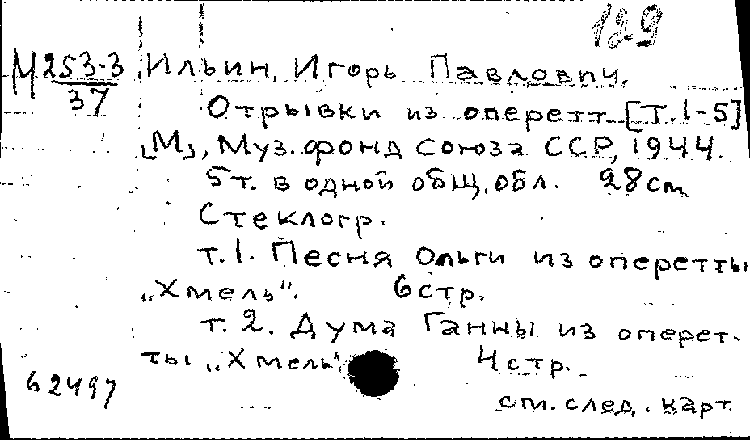 129
М 253-3 Ильин, Игорь Павлович.
37
Отрывки из оперетт [Т.1-5]
[М], Муз. фонд Союза ССР, 1944.
5 т. в одной общ. обл. 28 см
Стеклогр.
т. 1. Песня Ольги из оперетты
„Хмель". 6 стр.
т. 2. Дума Ганны из оперет-
ты „Хмель" 4 стр.
62497
см. след. карт.